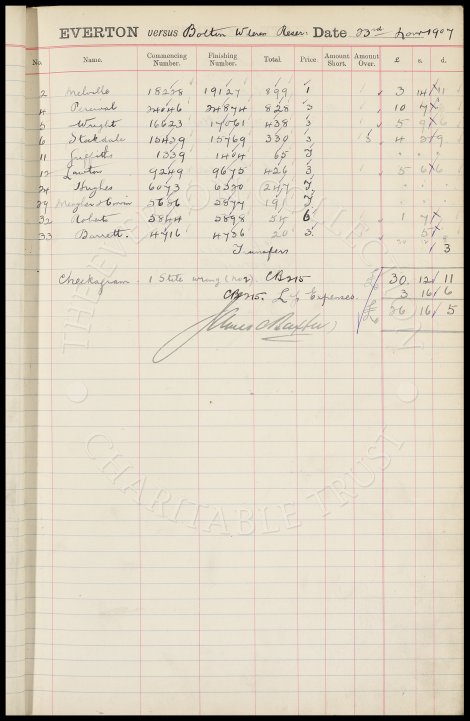 EVERTON versus Bolton Wders Reser. Date 23rd Nov 1907
No. Name. Commencing Number. Finishing Number. Total. Price. Amount Short. Amount Over. £ s. d.
2 Melville 18228 19127 899 1 3 14 11
4 Percival 24046 24874 828 3 10 7
5 Wright 16623 17061 438 3 5 9 6
6 Stockdale 15439 15769 330 3 4 2
11 Griffiths 1339 1404 65 3
12 Lawton 9249 9675 426 3 5 6 6
24 Hughes 6073 6320 247 3
29 5686 5877 191 3
32 5844 5898 54 6 1 7
33 Barrett. 4716 4736 20 3 5
Transfers 3
Checkagram 1 State wrong (No 2) CB215 £ 30 12 11
CB215. Expenses. 3 16 6
£ 26 16 5
James Baxter
THE EVERTON COLLECTION
CHARITABLE TRUST